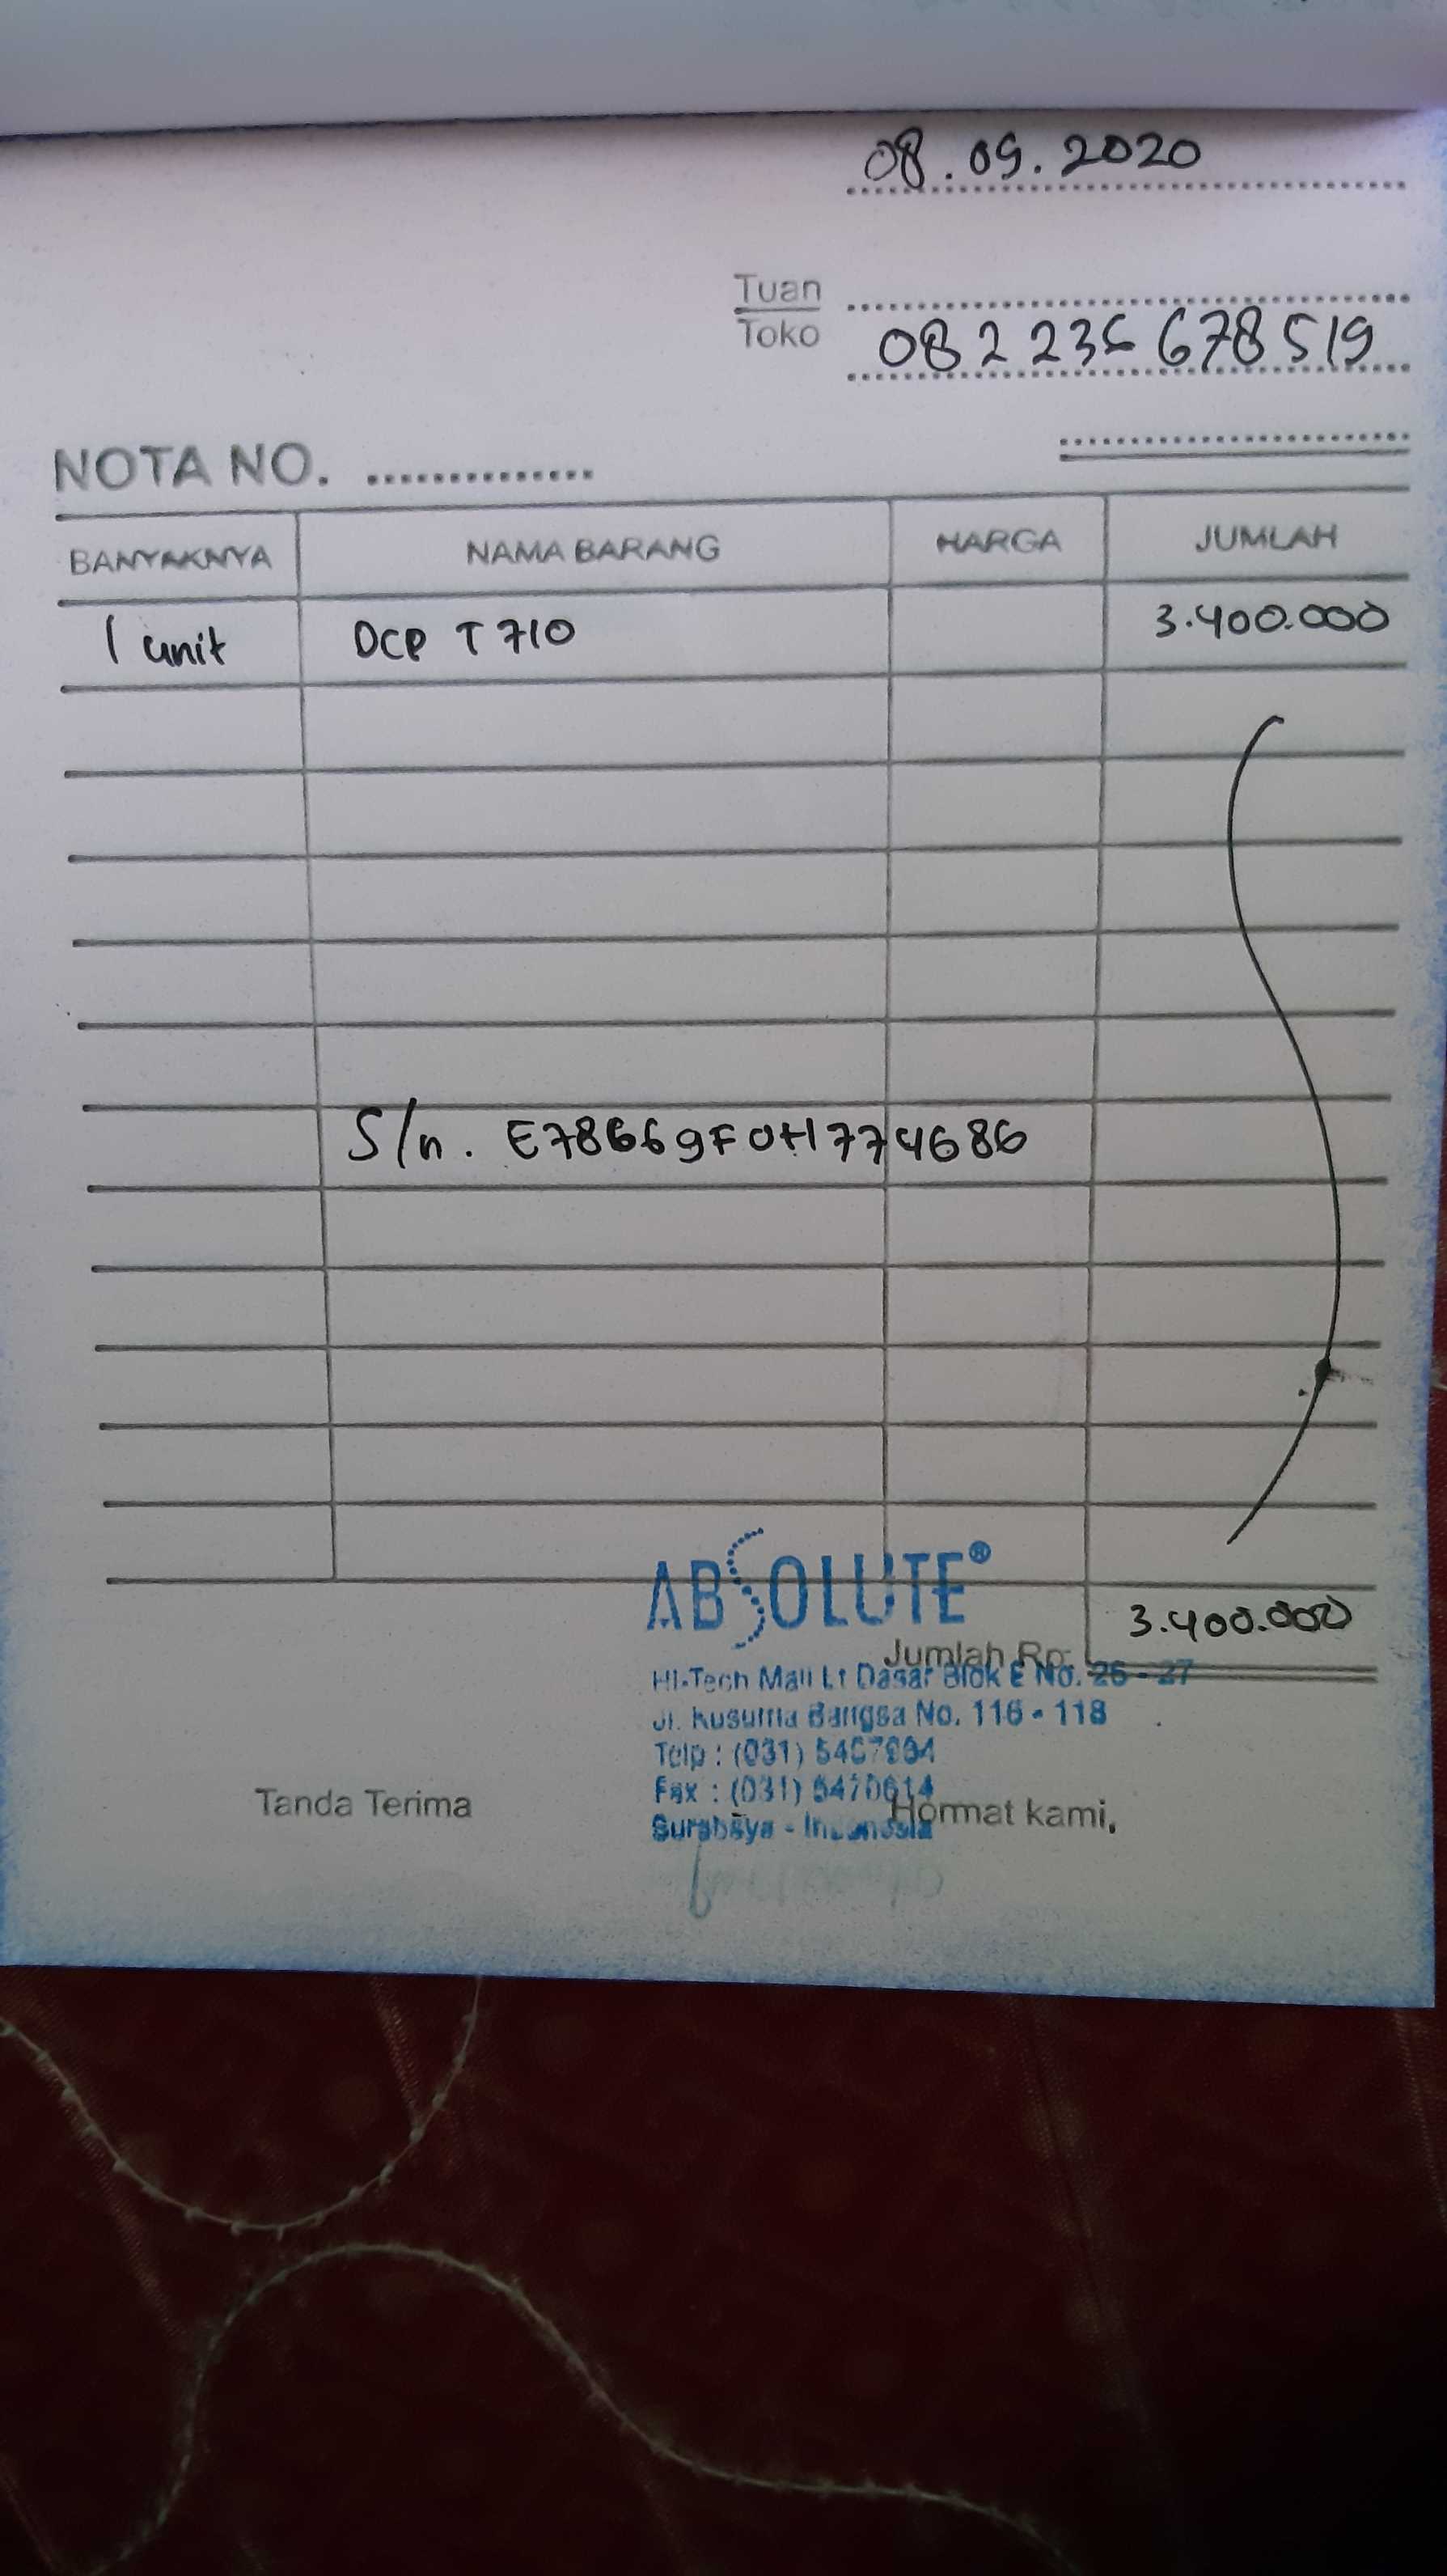 08.09.2020
Tuan
Toko
082 235 678 519
NOTA NO. ..............
BANYAKNYA NAMA BARANG HARGA JUMLAH
1 unit DCP T710 3.400.000
S/n. E78669F0H774686
ABSOLUTE®
3.400.000
Jumlah Rp.
Hi-Tech Mall Lt Dasar Blok E No. 26 - 27
Jl. Kusuma Bangsa No. 116 - 118
Telp : (031)
Fax : (031) 5470614
Surabaya - Indonesia
Tanda Terima
Hormat kami,